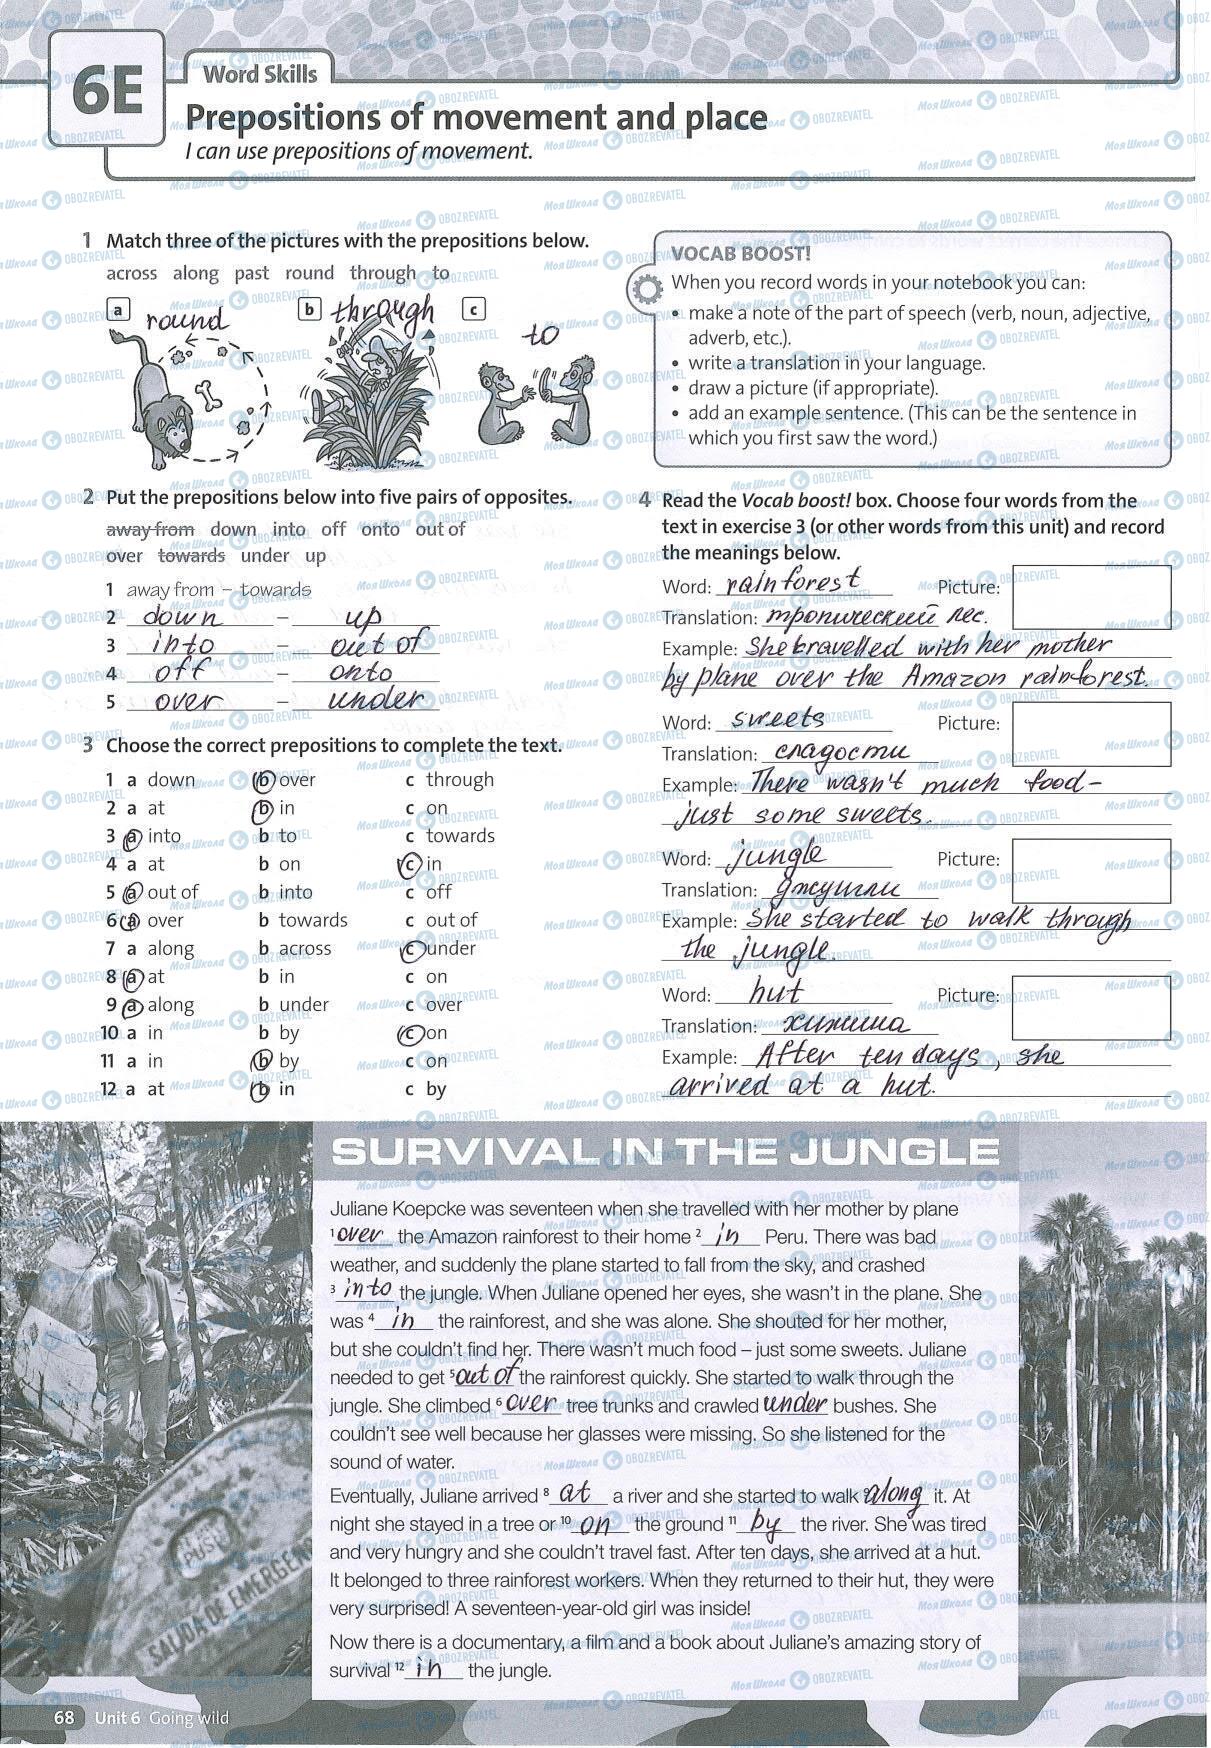 6E
Word Skills
Prepositions of movement and place
I can use prepositions of movement.
1 Match three of the pictures with the prepositions below.
across along past round through to
a round
b through
c to
2 Put the prepositions below into five pairs of opposites.
away from down into off onto out of
over towards under up
1 away from – towards
2 down – up
3 into – out of
4 off – onto
5 over – under
3 Choose the correct prepositions to complete the text.
1 a down b over c through
2 a at b in c on
3 a into b to c towards
4 a at b on c in
5 a out of b into c off
6 a over b towards c out of
7 a along b across c under
8 a at b in c on
9 a along b under c over
10 a in b by c on
11 a in b by c on
12 a at b in c by
VOCAB BOOST!
When you record words in your notebook you can:
• make a note of the part of speech (verb, noun, adjective,
adverb, etc.).
• write a translation in your language.
• draw a picture (if appropriate).
• add an example sentence. (This can be the sentence in
which you first saw the word.)
4 Read the Vocab boost! box. Choose four words from the
text in exercise 3 (or other words from this unit) and record
the meanings below.
Word: rainforest Picture:
Translation: тропический лес.
Example: She travelled with her mother
by plane over the Amazon rainforest.
Word: sweets Picture:
Translation: сладости
Example: There wasn't much food –
just some sweets.
Word: jungle Picture:
Translation: джунгли
Example: She started to walk through
the jungle.
Word: hut Picture:
Translation: хижина
Example: After ten days, she
arrived at a hut.
SURVIVAL IN THE JUNGLE
Juliane Koepcke was seventeen when she travelled with her mother by plane
1 over the Amazon rainforest to their home 2 in Peru. There was bad
weather, and suddenly the plane started to fall from the sky, and crashed
3 into the jungle. When Juliane opened her eyes, she wasn't in the plane. She
was 4 in the rainforest, and she was alone. She shouted for her mother,
but she couldn't find her. There wasn't much food – just some sweets. Juliane
needed to get 5 out of the rainforest quickly. She started to walk through the
jungle. She climbed 6 over tree trunks and crawled under bushes. She
couldn't see well because her glasses were missing. So she listened for the
sound of water.
Eventually, Juliane arrived 8 at a river and she started to walk along it. At
night she stayed in a tree or 10 on the ground 11 by the river. She was tired
and very hungry and she couldn't travel fast. After ten days, she arrived at a hut.
It belonged to three rainforest workers. When they returned to their hut, they were
very surprised! A seventeen-year-old girl was inside!
Now there is a documentary, a film and a book about Juliane's amazing story of
survival 12 in the jungle.
PUSH
SALIDA DE EMERGEN
68 Unit 6 Going wild
Моя Школа OBOZREVATEL